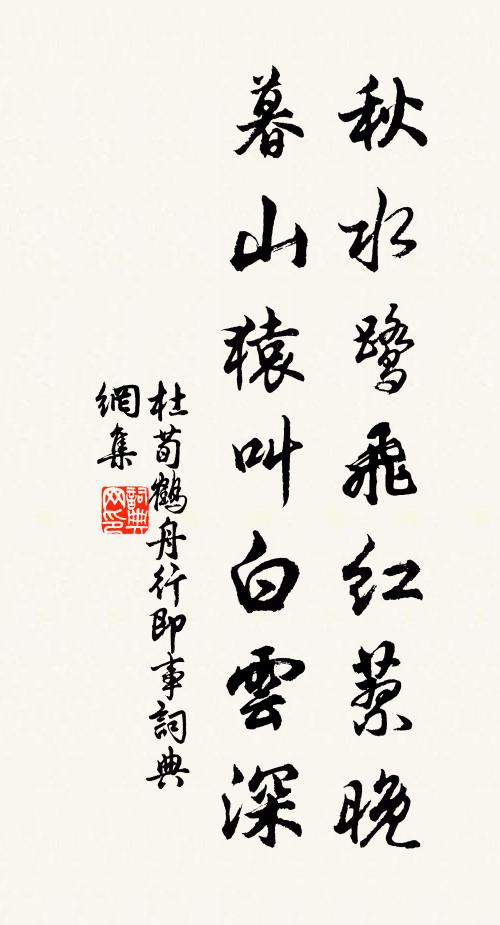 秋水鹭飛红蓼晚
暮山猿叫白雲深
杜荀鶴舟行即事詞典
網集
詞典
网印